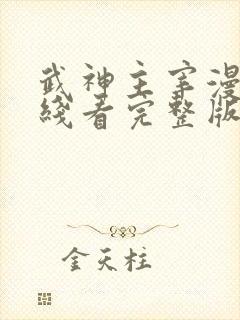 武神主宰漫
綫看完整版
金天柱